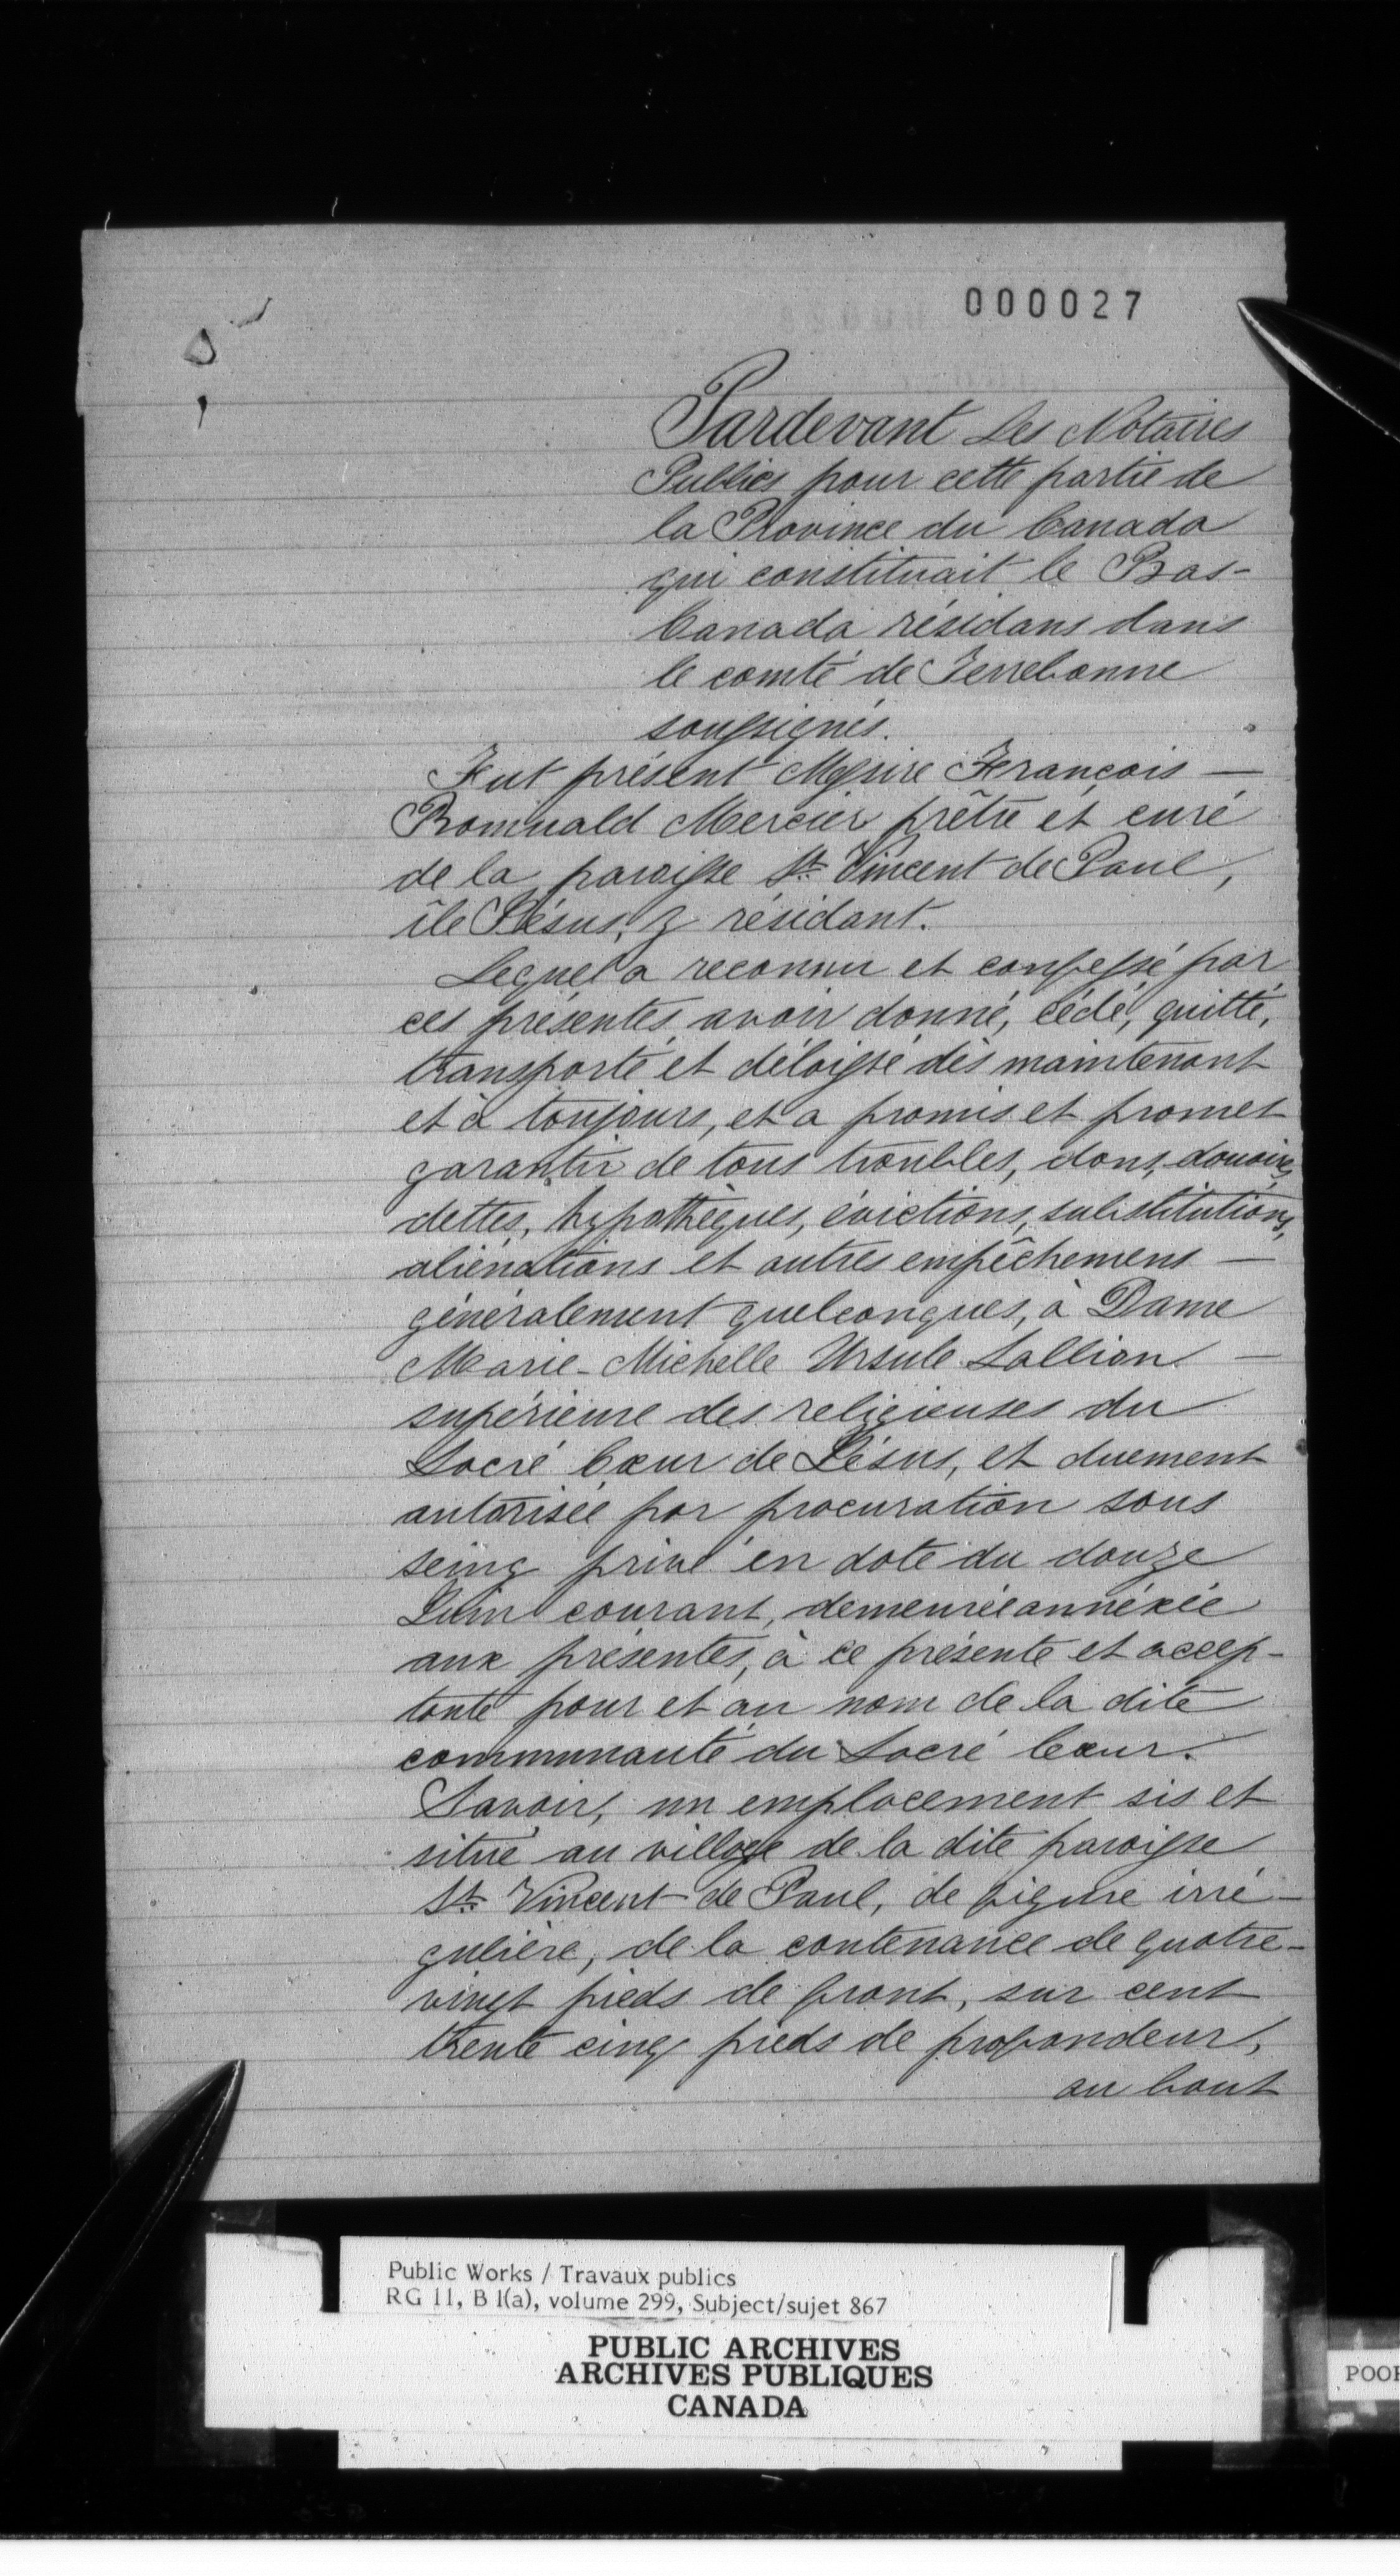 000027
Pardevant Les Notaires
Publics pour cette partie de
la Province du Canada
qui constituait le Bas-
Canada résidans dans
le comté de Terrebonne
soussignés.
Fut présent Messire François —
Romuald Mercier prêtre et curé
de la paroisse St. Vincent de Paul,
île Jésus, y résidant.
Lequel a reconnu et confessé par
ces présentes avoir donné, cédé, quitté,
transporté et délaissé dès maintenant
et à toujours, et a promis et promet
garantir de tous troubles, dons, douaires,
dettes, hypothèques, évictions, substitutions,
aliénations et autres empêchemens —
généralement quelconques, à Dame
Marie-Michelle Ursule Lallion —
supérieure des religieuses du
Sacré Cœur de Jésus, et duement
autorisée par procuration sous
seing privé en date du douze
Juin courant, demeurée annéxée
aux présentes, à ce présente et accep-
tante pour et au nom de la dite
communauté du Sacré Cœur.
Savoir, un emplacement sis et
situé au village de la dite paroisse
St. Vincent de Paul, de figure irré-
gulière, de la contenance de quatre-
vingt pieds de front, sur cent
trente cinq pieds de profondeur,
au bout
Public Works / Travaux publics
RG 11, B 1(a), volume 299, Subject/sujet 867
PUBLIC ARCHIVES
ARCHIVES PUBLIQUES
CANADA